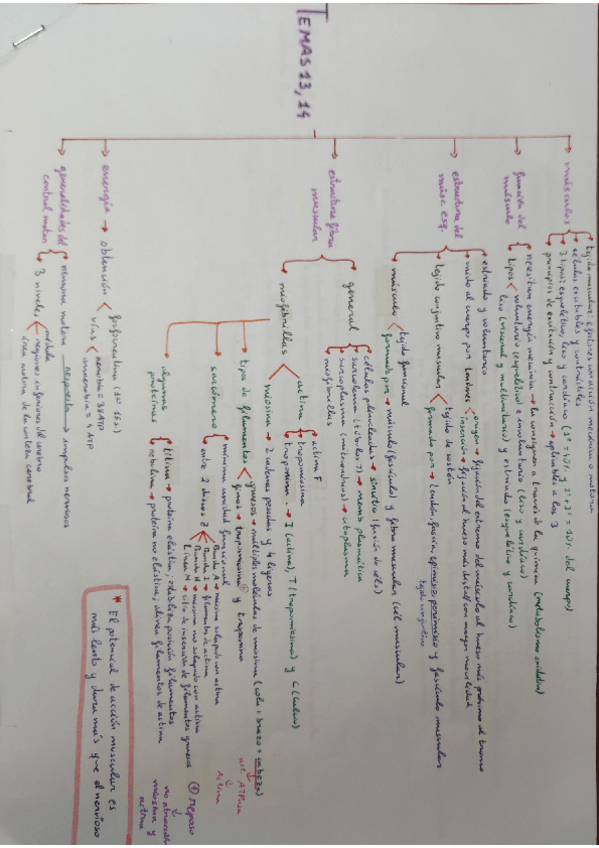 TEMAS 13, 14
músculos
tejido muscular: efectores, variación mecánica o motora
células excitables y contráctiles
3 tipos: esquelético, liso y cardíaco (1º = 40%, 2º y 3º = 10% del cuerpo)
principios de excitación y contracción → aplicables a los 3
función del
músculo
necesitan energía mecánica → la consiguen a través de la química (metabolismo oxidativo)
tipos
voluntario (esquelético) e involuntario (liso y cardíaco)
liso (visceral y multiunitario) y estriado (esquelético y cardíaco)
estructura del
músc. esq.
estriado y voluntario
unido al cuerpo por tendones
origen → fijación del extremo del músculo al hueso más próximo al tronco
inserción → fijación al hueso más distal con mayor movilidad
tejido conjuntivo muscular
tejido de sostén
formado por → tendón, fascia, epimisio, perimisio y fascículo muscular
tejido conjuntivo
músculo
tejido funcional
formado por → músculo (fascículos) y fibra muscular (cél. muscular)
estructura fibra
muscular
general
células plurinucleadas → sincitio (fusión de céls)
sarcolema (túbulos T) → memb. plasmática
sarcoplasma (mitocondrias) → citoplasma
miofibrillas
miofibrillas
actina
actina F
tropomiosina
troponina → I (actina), T (tropomiosina) y C (calcio)
miosina → 2 cadenas pesadas y 4 ligeras
tipos de filamentos
gruesos → múltiples moléculas de miosina (cola + brazo + cabeza)
finos → tropomiosina y troponina
act. ATPasa
Actina
sarcómero
mínima unidad funcional
entre 2 discos Z
Banda A → miosina solapada con actina
Banda I → filamentos de actina
Banda H → miosina no solapada con actina
Línea M → sitio de inserción de filamentos gruesos
reposo
no atracción
miosina y
actina
algunas
proteínas
titina → proteína elástica; estabiliza posición filamentos
nebulina → proteína no elástica; alinea filamentos de actina
energía → obtención
fosfocreatina (10-15s)
vías
aerobia = 38 ATP
anaerobia = 4 ATP
generalidades del
control motor
neurona motora → respuesta → impulsos nerviosos
3 niveles
médula
regiones inferiores del cerebro
área motora de la corteza cerebral
* El potencial de acción muscular es
más lento y dura más que el nervioso